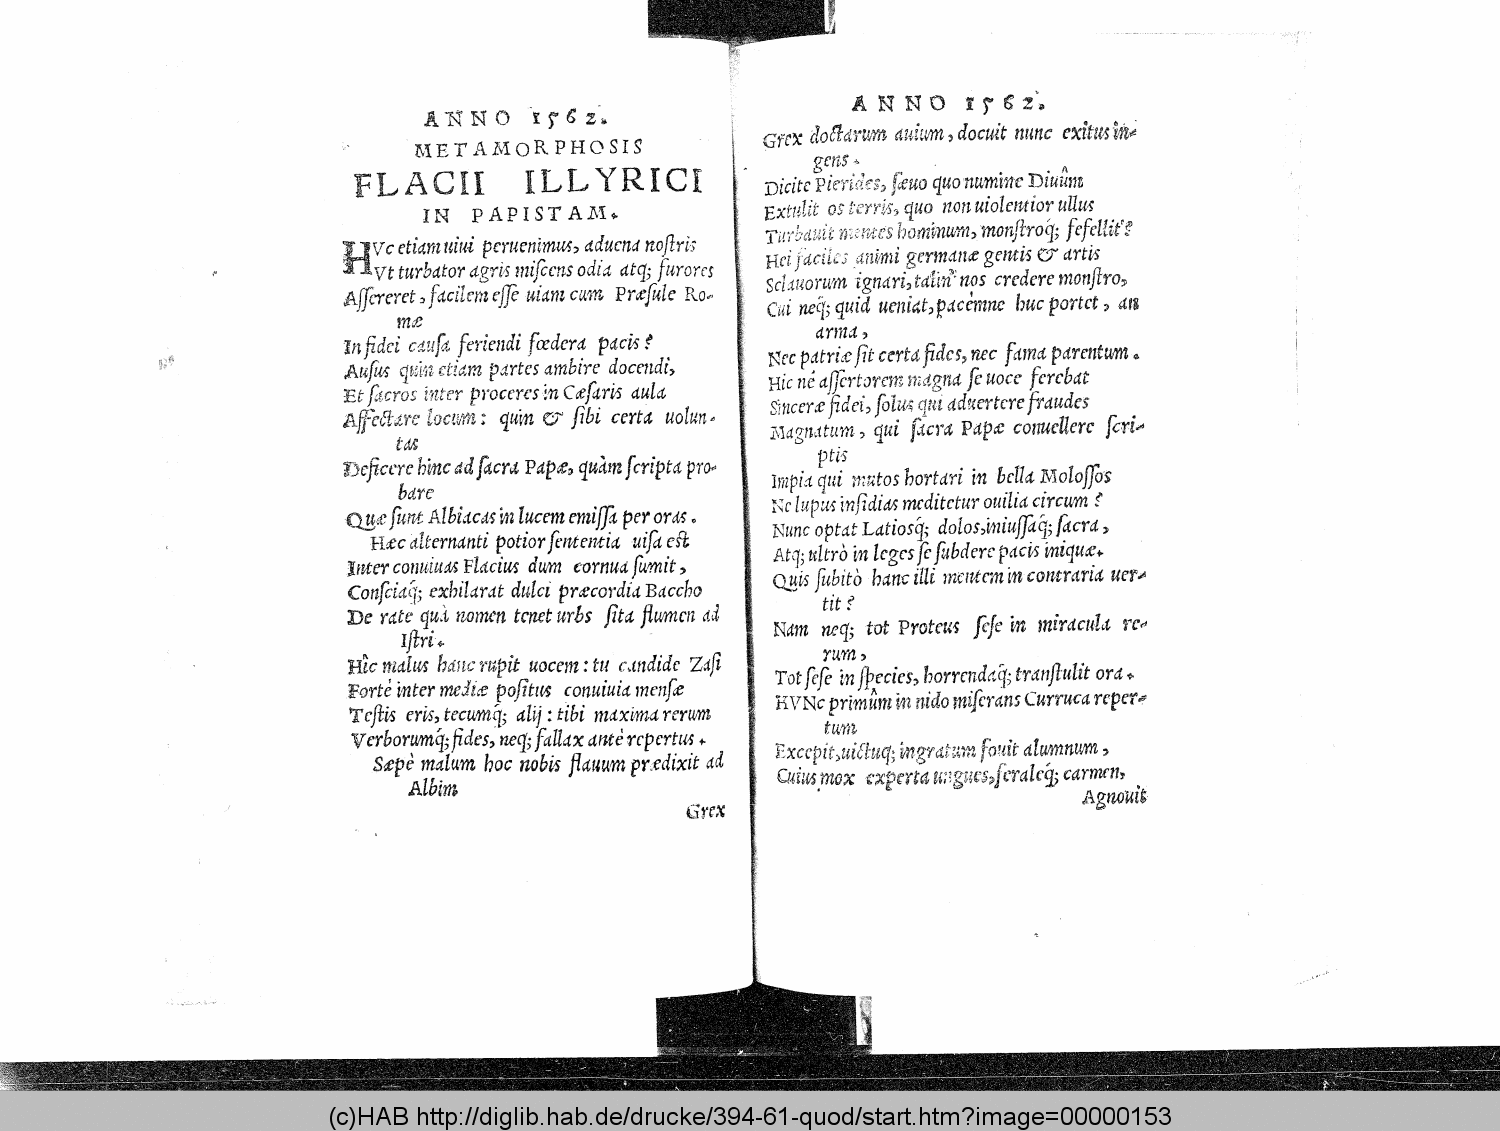 ANNO 1562.
METAMORPHOSIS
FLACII ILLYRICI
IN PAPISTAM.
HVc etiam uiui peruenimus, aduena noſtris
Vt turbator agris miſcens odia atq; furores
Aſſereret, facilem eſſe uiam cum Præſule Ro-
mæ
In fidei cauſa feriendi fœdera pacis?
Auſus quin etiam partes ambire docendi,
Et ſacros inter proceres in Cæſaris aula
Affectare locum: quin & ſibi certa uolun-
tas
Deficere hinc ad ſacra Papæ, quàm ſcripta pro-
bare
Quæ ſunt Albiacas in lucem emiſſa per oras.
Hæc alternanti potior ſententia uiſa eſt
Inter conuiuas Flacius dum cornua ſumit,
Conſciaq́; exhilarat dulci præcordia Baccho
De rate quà nomen tenet urbs ſita flumen ad
Iſtri.
Hîc malus hanc rupit uocem: tu candide Zaſi
Fortè inter mediæ poſitus conuiuia menſæ
Teſtis eris, tecumq́; alij: tibi maxima rerum
Verborumq́; fides, neq; fallax antè repertus.
Sæpè malum hoc nobis flauum prædixit ad
Albim
Grex
ANNO 1562.
Grex doctarum auium, docuit nunc exitus in-
gens.
Dicite Pierides, ſæuo quo numine Diuûm
Extulit os terris, quo non uiolentior ullus
Turbauit mentes hominum, monſtroq́; fefellit?
Hei faciles animi germanæ gentis & artis
Sclauorum ignari, talin' nos credere monſtro,
Cui neq́; quid ueniat, pacémne huc portet, an
arma,
Nec patriæ ſit certa fides, nec fama parentum.
Hic né aſſertorem magna ſe uoce ferebat
Sinceræ fidei, ſolus qui aduertere fraudes
Magnatum, qui ſacra Papæ conuellere ſcri-
ptis
Impia qui mutos hortari in bella Moloſſos
Ne lupus inſidias meditetur ouilia circum?
Nunc optat Latiosq́; dolos, iniuſſaq́; ſacra,
Atq; ultrò in leges ſe ſubdere pacis iniquæ.
Quis ſubitò hanc illi mentem in contraria uer-
tit?
Nam neq; tot Proteus ſeſe in miracula re-
rum,
Tot ſeſe in ſpecies, horrendaq́; tranſtulit ora.
HVNc primûm in nido miſerans Curruca reper-
tum
Excepit, uictuq; ingratum fouit alumnum,
Cuius mox experta ungues, feraleq́; carmen,
Agnouit
(c)HAB http://diglib.hab.de/drucke/394-61-quod/start.htm?image=00000153